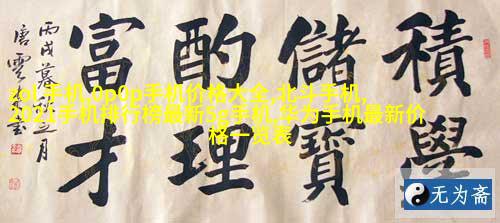 積學
儲寶
酌理
富才
丙戌暮秋之月
唐雲
zol手机,0p0p手机价格大全,北斗手机,
2021手机排行榜最新5g手机,华为手机最新价
格一览表
无为斋